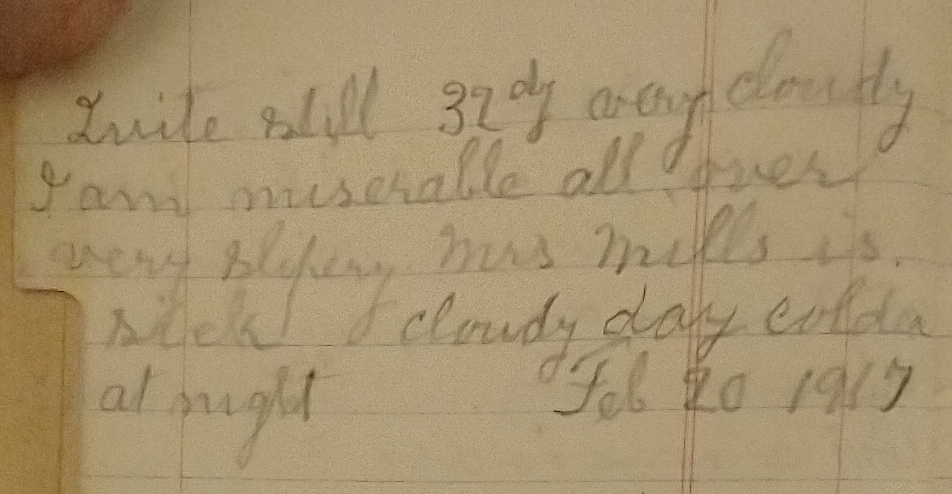 Quite still 32 dg very cloudy
I am miserable all over
very slipery Mrs Mills is.
sick cloudy day colder
at night Feb 20 1917